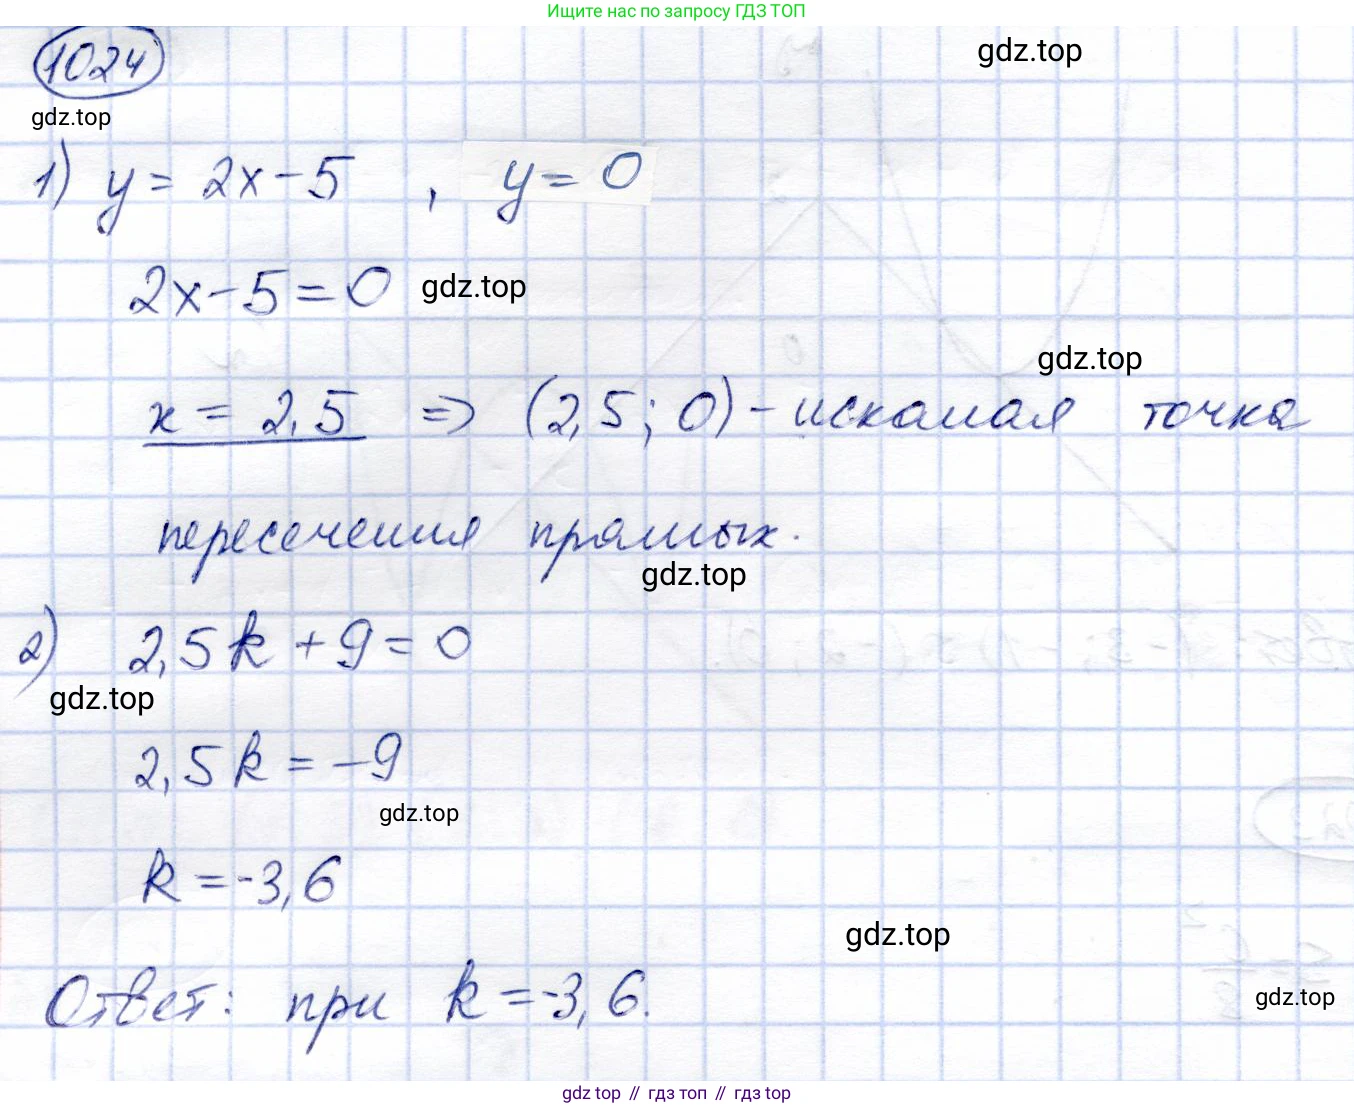 Ищите нас по запросу ГДЗ ТОП
1024
gdz.top
gdz.top
1) y = 2x - 5 , y = 0
2x - 5 = 0 gdz.top
gdz.top
x = 2,5 => (2,5; 0) - искомая точка
пересечения прямых.
gdz.top
2) 2,5k + 9 = 0
gdz.top
2,5k = -9
gdz.top
k = -3,6
gdz.top
Ответ: при k = -3,6.
gdz.top
gdz top // гдз топ // gdz top